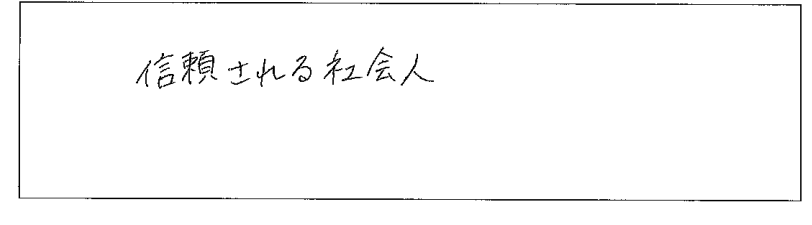 信頼される社会人